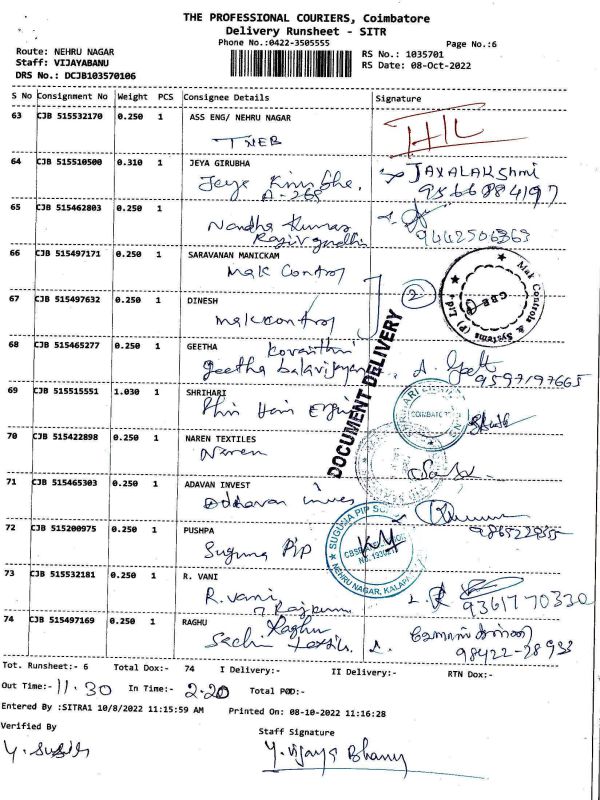 THE PROFESSIONAL COURIERS, Coimbatore
Delivery Runsheet - SITR
Phone No.:0422-3505555
Page No.:6
Route: NEHRU NAGAR
Staff: VIJAYABANU
DRS No.: DCJB103570106
RS No.: 1035701
RS Date: 08-Oct-2022
S No Consignment No Weight PCS Consignee Details Signature
63 CJB 515532170 0.250 1 ASS ENG/ NEHRU NAGAR
TNEB
64 CJB 515510500 0.310 1 JEYA GIRUBHA
JAYALAKshmi
A-268
9566884197
65 CJB 515462803 0.250 1
Nandha Kumar
Rajiv gandhi
9442506363
66 CJB 515497171 0.250 1 SARAVANAN MANICKAM
Mak Control
2
Mak Controls & Systems (P) Ltd
CBE
67 CJB 515497632 0.250 1 DINESH
mak control
68 CJB 515465277 0.250 1 GEETHA
geetha balavijayan
9597197665
DOCUMENT DELIVERY
69 CJB 515515551 1.030 1 SHRIHARI
COIMBATORE
70 CJB 515422898 0.250 1 NAREN TEXTILES
Naren
71 CJB 515465303 0.250 1 ADAVAN INVEST
72 CJB 515200975 0.250 1 PUSHPA
Suguna Pip
SUGUNA PIP
NEHRU NAGAR, KALAP
73 CJB 515532181 0.250 1 R. VANI
R. Vani
9361770330
74 CJB 515497169 0.250 1 RAGHU
Raghu
98422-28933
Tot. Runsheet:- 6 Total Dox:- 74 I Delivery:- II Delivery:- RTN Dox:-
Out Time:- 11.30 In Time:- 2.20 Total POD:-
Entered By :SITRA1 10/8/2022 11:15:59 AM Printed On: 08-10-2022 11:16:28
Verified By
Staff Signature
Y. Vijaya Bhanu